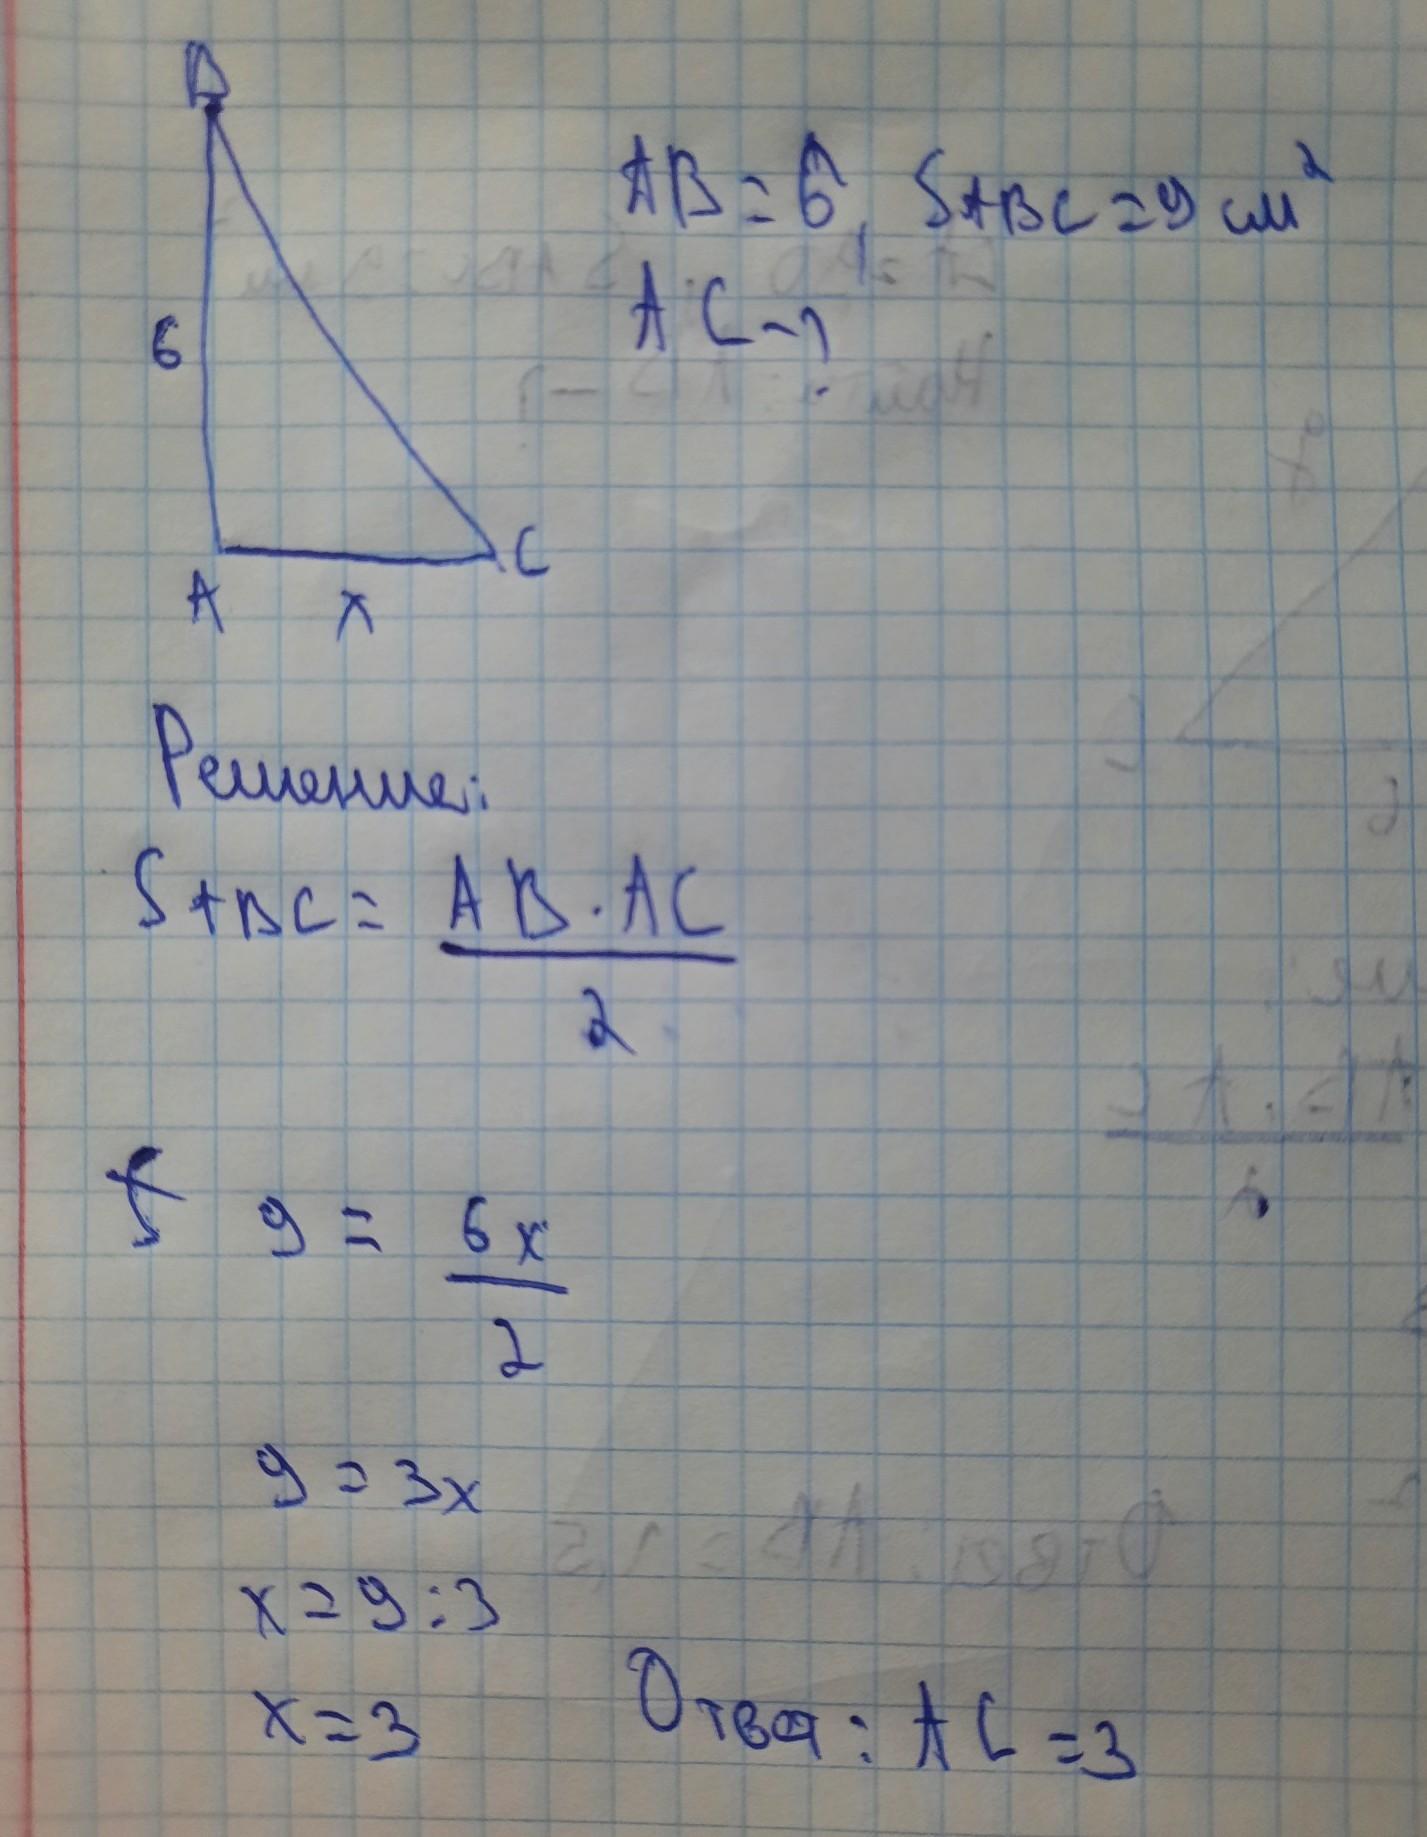 B
AB = 6, SABC = 9 см²
AC - ?
6
A
C
x
Решение:
SABC = AB · AC
2
9 = 6x
2
9 = 3x
x = 9 : 3
x = 3
Ответ: AC = 3